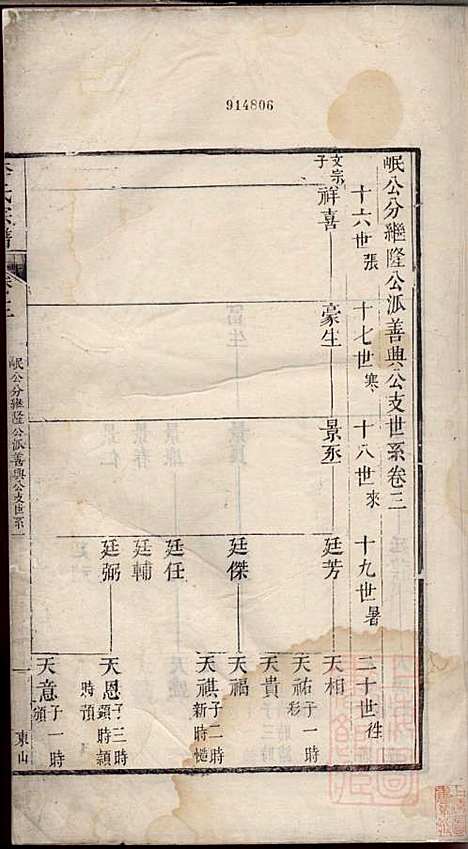 914806
岷公分繼隆公派善興公支世系卷三
十六世張
十七世寒
十八世來
十九世暑
二十世往
文宗子
祥喜
豪生
景丞
廷芳
廷傑
廷任
廷輔
廷弼
天相
天祐子一時彩
天貴
天福
天祺子二時新時慥
天恩子三時鎖時穎時預
天意子一時頎
岷公分繼隆公派善興公支世系
一
東山